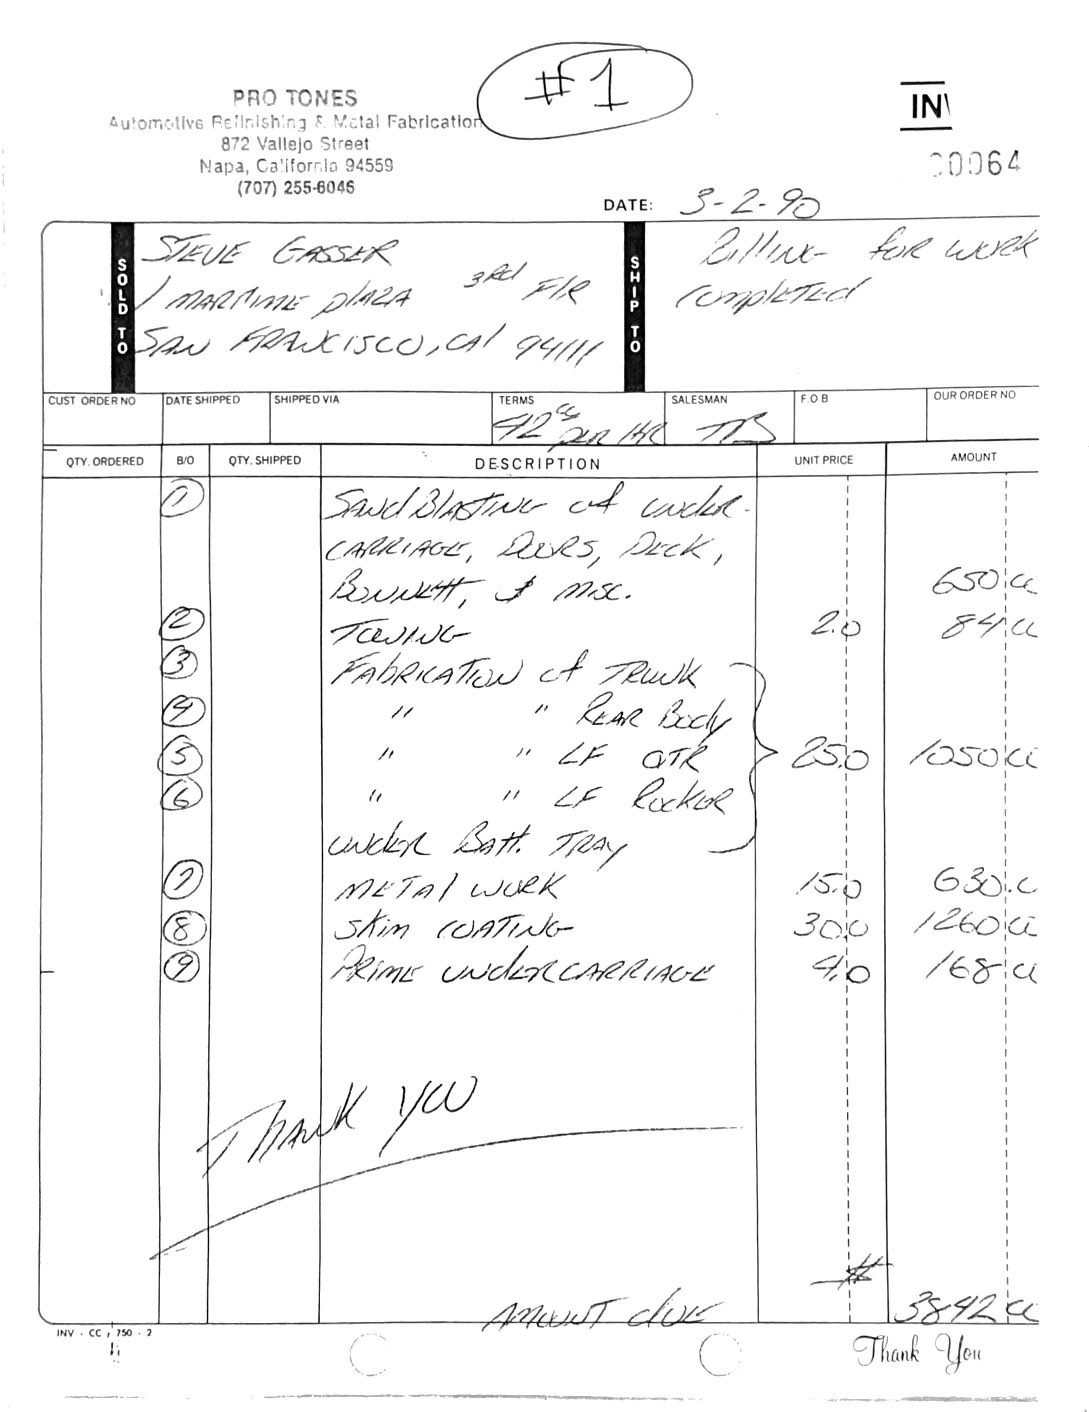 #1
PRO TONES
Automotive Refinishing & Metal Fabrication
872 Vallejo Street
Napa, California 94559
(707) 255-6046
IN
00064
DATE: 3-2-90
SOLD TO
STEVE GASSER
1 MARITIME PLAZA 3RD FLR
SAN FRANCISCO, CA 94111
SHIP TO
Billing for work
completed
CUST ORDER NO DATE SHIPPED SHIPPED VIA TERMS SALESMAN F.O.B OUR ORDER NO
42 00 per HR TTB
QTY. ORDERED B/O QTY. SHIPPED DESCRIPTION UNIT PRICE AMOUNT
1 SandBlasting of under-
carriage, Doors, Deck,
Bonnett, & misc. 650 00
2 Towing 2.0 84 00
3 Fabrication of Trunk
4 " " Rear Body
5 " " LF QTR 25.0 1050 00
6 " " LF Rocker
under Batt. Tray
7 Metal work 15.0 630.0
8 Skim Coating 30.0 1260 00
9 Prime undercarriage 4.0 168 00
Thank you
#
Amount due 3842 00
INV - CC 750 - 2
Thank You